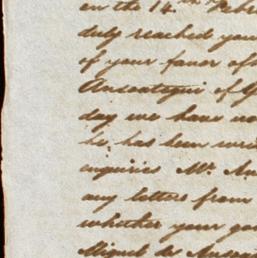 on the 14th Febr
duly reached you
of your favor of
Ansoategui of
day we have no
he, has been
enquiries Mr. An
any letters from
whether your go
Miguel de Ansoa